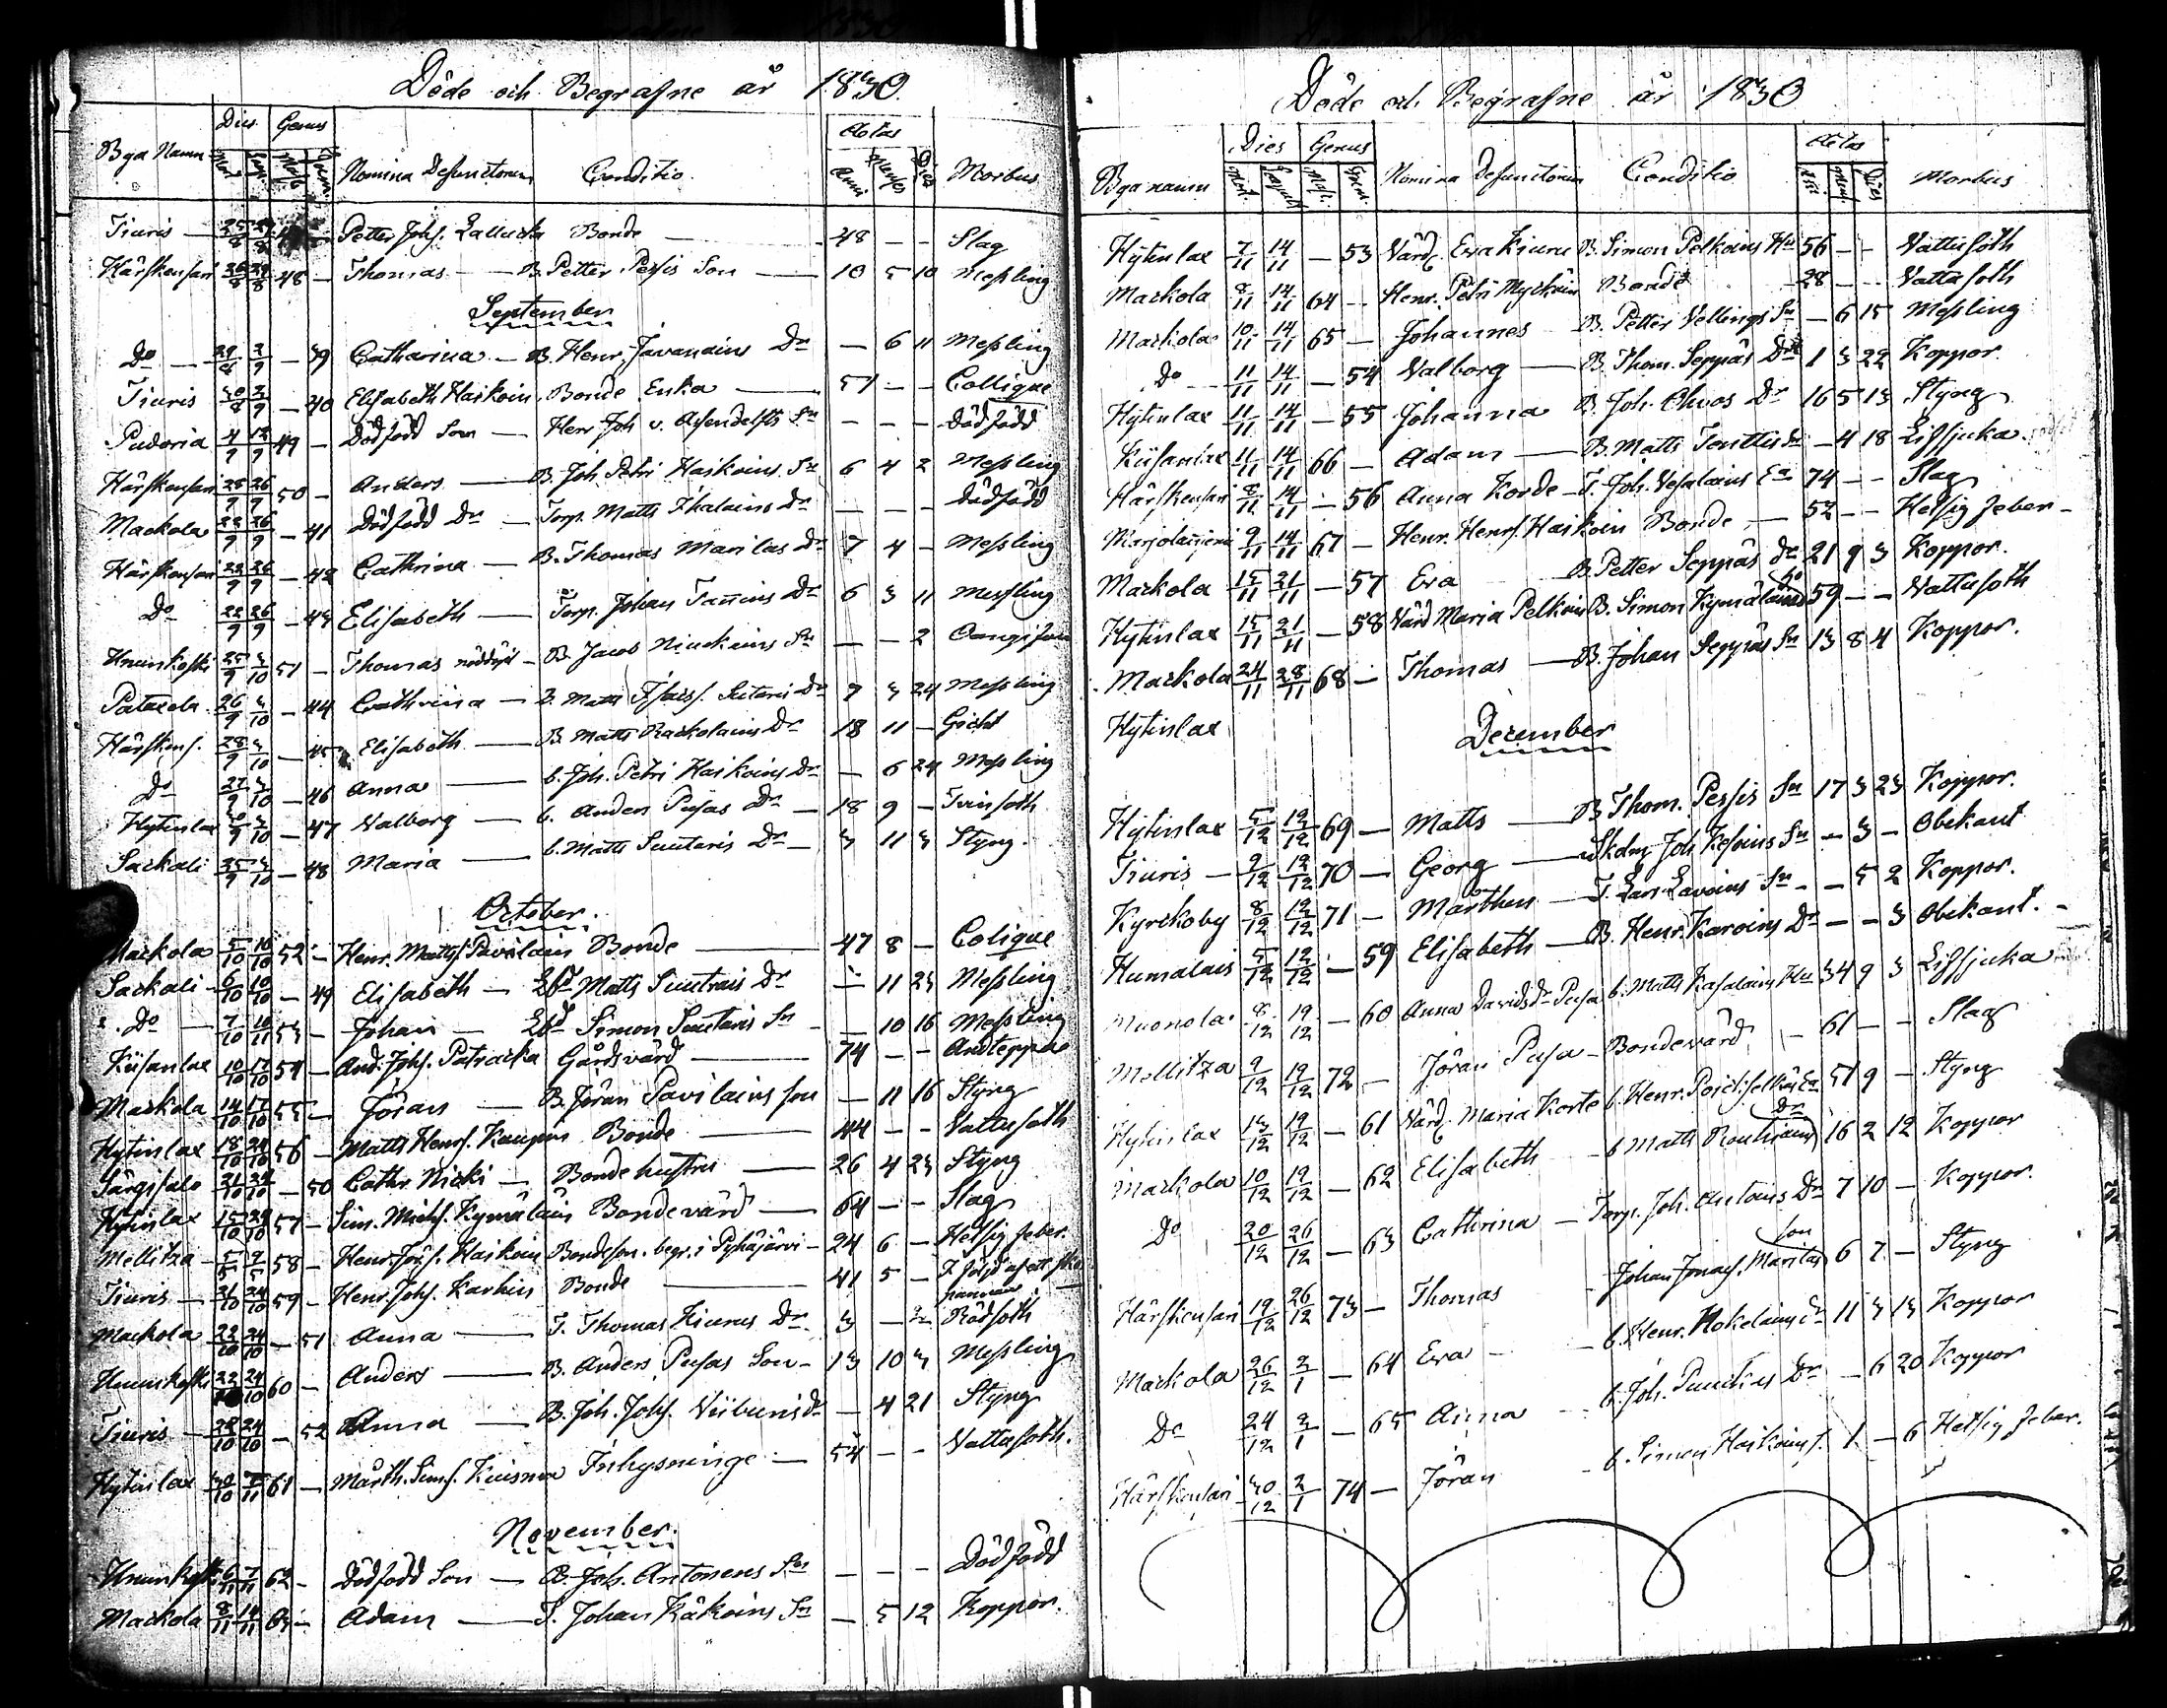 Döde och Begrafne år 1830.
Bya Namn Dies Genus Nomina Defunctorum Conditio Aetas Morbus
Mort. Sep. Masc. Foem. Anni Menses Dies
Tiuris — 25/8 29/8 — Petter Johs. Lallucka Bonde — 48 — — Slag
Härskensari 26/8 29/8 48 — Thomas — B. Petter Pessis Son — 10 5 10 Messling
September
Do — 29/8 3/9 — 39 Catharina — B. Henr. Javanains Dr — 6 11 Messling
Tiuris 30/8 3/9 — 40 Elisabeth Haikoin Bonde Enka — 57 — — Collique
Pudoria 4/9 12/9 49 — Dödfödd Son — Herr Joh v. Sn — — — Dödfödd
Härskensari 25/9 26/9 50 — Anders — B. Joh Petri Haikoins Sn 6 4 2 Messling
Mackola 22/9 26/9 — 41 Dödfödd Dr — Torp. Matts Ihalains Dr — — — Dödfödd
Härskensari 22/9 26/9 — 42 Cathrina — B. Thomas Marilas Dr 7 4 — Messling
Do 22/9 26/9 — 43 Elisabeth — Torp. Johan Tanins Dr 6 3 11 Messling
Ununkoski 25/9 3/10 51 — Thomas nöddöpt — B. Jacob Niuckains Sn — — 2
Pataxela 26/9 3/10 — 44 Cathrina — B. Matts Suitaris Dr 7 3 24 Messling
Härskens. 28/9 3/10 — 45 Elisabeth — B. Matts Rackolains Dr 18 11 — Gicht
Do 27/9 3/10 — 46 Anna — b. Joh. Petri Haikoins Dr — 6 24 Messling
Hytinlax 30/9 3/10 — 47 Walborg — b. Anders Pusas Dr — 18 9 — Tvinsoth
Sackali 25/9 3/10 — 48 Maria — b. Matts Suutaris Dr — 3 11 3 Styng.
October.
Mackola 5/10 10/10 52 — Henr. Matts. Pavilain Bonde — 47 8 — Colique
Sackali 6/10 10/10 — 49 Elisabeth — Matts Suutrais Dr — 11 23 Messling
Do — 7/10 10/11 53 — Johan — Simon Suutaris Sn — 10 16 Messling
Kiisanlax 10/10 17/10 54 — And. Johs. Patracka Gårdsvärd — 74 — — Andteppa
Mackola 14/10 17/10 55 — Jöran — B. Jöran Pavilains son — 11 16 Styng
Hytinlax 18/10 24/10 56 — Matts Henrs. Kaupin Bonde — 44 — — Vattusoth
Särgisalo 21/10 24/10 — 50 Cathr Nicki — Bonde hustru — 26 4 23 Styng
Hytinlax 15/10 24/10 57 — Sim. Michs. Kymäläin Bondevärd — 64 — — Slag
Mellitza — 5/5 9/5 58 — Henr. Johs. Haikoin Bondeson. begr. i Pyhäjärvi — 24 6 — Hetsig feber
Tiuris — 21/10 24/10 59 — Henr. Johs. Karhin Bonde — 41 5 — I följd af ett
Mackola 22/10 24/10 — 51 Anna — T. Thomas Kiurus Dr 3 — 2 Rödsoth
Ununkoski 22/10 24/10 60 — Anders — B. Anders Pusas Son — 13 10 3 Messling
Tiuris — 22/10 24/10 — 52 Anna — B. Joh. Johs. Wiibunis dr — 4 21 Styng
Hytinlax 30/10 7/11 61 — Mårth. Sims. Kuisma Inhysninge — 54 — — Vattusoth.
November.
Ununkoski 6/11 7/11 62 — Dödfödd Son — B. Joh. Antonens Sn — — — Dödfödd
Mackola 8/11 14/11 63 — Adam — T. Johan Käkoins Sn — 5 12 Koppor.
Döde och Begrafne år 1830
Bya namn Dies Genus Nomina Defunctorum Conditio Aetas Morbus
Mort. Sepult. Masc. Foem. Ani Mens. Dies
Hytinlax 7/11 14/11 — 53 Värd. Eva Kiuru B. Simon Pelkoins Hu 56 — — Vattusoth
Mackola 8/11 14/11 64 — Henr. Petri Myckoin Bonde 28 — — Vattusoth
Mackola 10/11 14/11 65 — Johannes B. Petter Vellings Sn — 6 15 Messling
Do 11/11 14/11 — 54 Walborg — B. Thom. Seppäs Dr 1 3 22 Koppor
Hytinlax 11/11 14/11 — 55 Johanna B. Joh. Ohvos Dr 16 5 13 Styng
Kiisanlax 11/11 14/11 66 — Adam — B. Matts Tenttis Sn — 4 18 Lifsjuka
Härskensari 8/11 14/11 — 56 Anna Korde — T. Joh. Vesalains Ea 74 — — Slag
Marjolaniemi 9/11 14/11 67 — Henr. Henrs. Haikoin Bonde — 52 — — Hetsig feber —
Mackola 15/11 21/11 — 57 Eva B. Petter Seppäs dr 21 9 3 Koppor.
Hytinlax 15/11 21/11 — 58 Värd Maria Pelkoin B. Simon Kymäläins 59 — — Vattusoth
Mackola 24/11 28/11 68 — Thomas — B. Johan Seppäs Sn 13 8 4 Koppor.
Hytinlax
December
Hytinlax 5/12 12/12 69 — Matts — B Thom. Pessis Sn 17 3 23 Koppor.
Tiuris — 9/12 12/12 70 — Georg — Joh Kesoins Sn — 3 — Obekant
Kyrckoby 8/12 12/12 71 — Mårthen — T. Lars Lavoins Sn — — 5 2 Koppor.
Humalais 5/12 12/12 — 59 Elisabeth — B. Henr. Karoins Dr — — 3 Obekant. —
Muonola 8/12 19/12 — 60 Anna Davids Dr Pusa b. Matts Kasalains Hu 34 9 3 Lifsjuka
Mellitza 9/12 19/12 72 — Jöran Pusa — Bondevärd — 61 — — Slag
Hytinlax 13/12 19/12 — 61 Värd. Maria Korte b. Henr. Ea 51 9 — Styng
Mackola 10/12 19/12 — 62 Elisabeth — b Matts Routiains Dr 16 2 12 Koppor
Do 20/12 26/12 — 63 Cathrina — Torp. Joh. Antains Dr 7 10 — Koppor.
Härskensari 19/12 26/12 73 — Thomas — Johan Jonas. Marilas son 6 7 — Styng
Mackola 26/12 2/1 — 64 Eva — b. Henr. Hokelains dr 11 3 13 Koppor
Do 24/12 2/1 — 65 Anna — b. Joh. Puuckis Dr — 6 20 Koppor
Härskensari 30/12 2/1 74 — Jöran — b. Simon Haikoins s. 1 — 6 Hetsig feber.